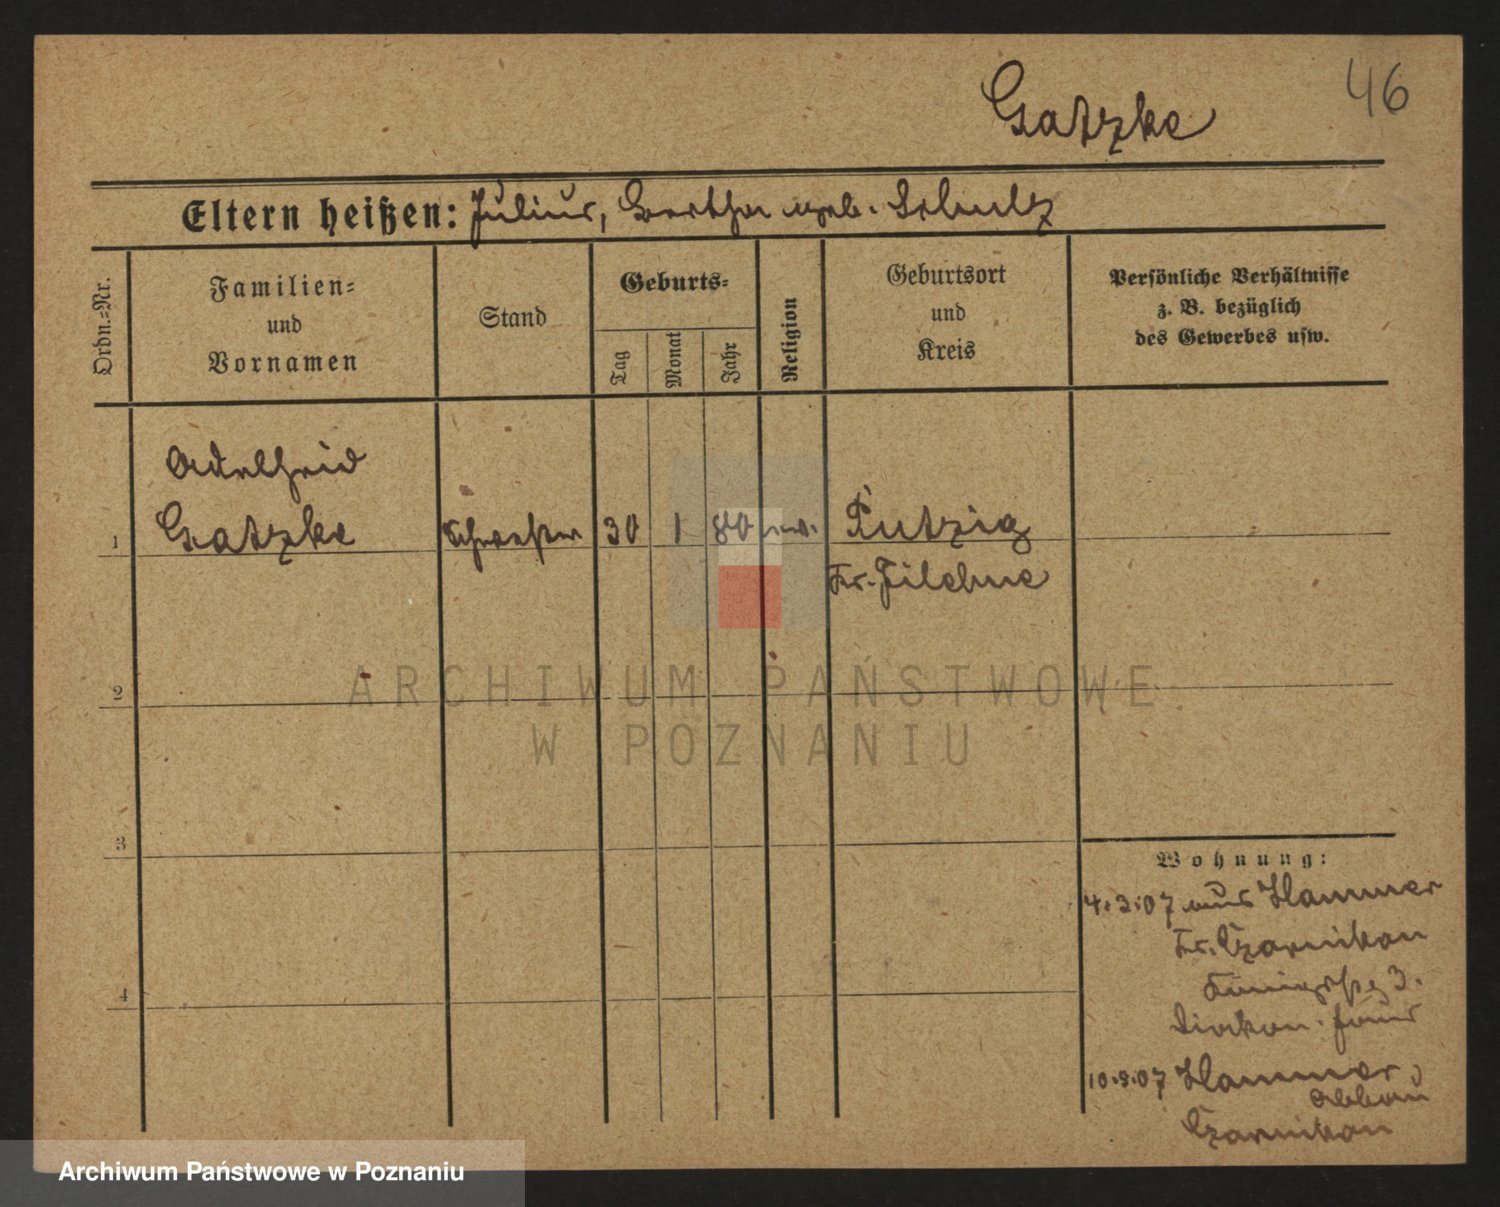 46
Gatzke
Eltern heißen: Julius, Bertha geb. Schulz
Ordn.-Nr.
Familien-
und
Vornamen
Stand
Geburts-
Tag
Monat
Jahr
Religion
Geburtsort
und
Kreis
Persönliche Verhältnisse
z. B. bezüglich
des Gewerbes usw.
Adelheid
1 Gatzke Schwester 30 1 80 ev. Putzig
Kr. Filehne
2
3
4
Wohnung:
4.3.07 aus Hammer
Kr. Czarnikau
3.
Diakon. Haus
10.9.07 Hammer
Abbau
Czarnikau
ARCHIWUM PAŃSTWOWE
W POZNANIU
Archiwum Państwowe w Poznaniu